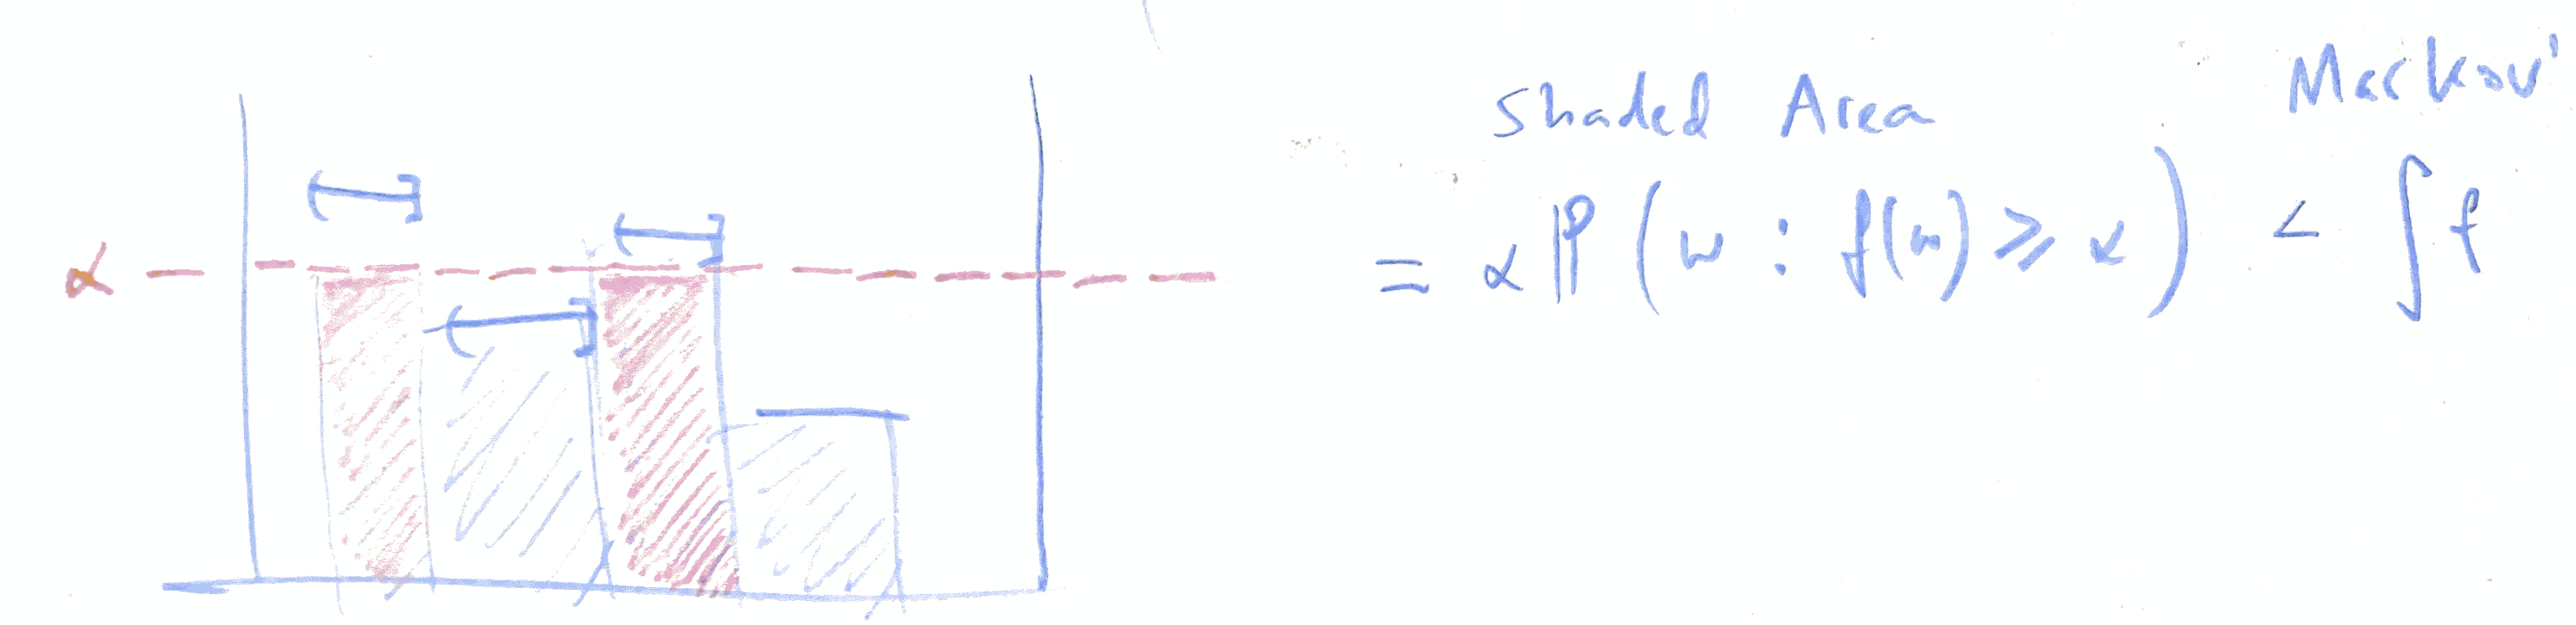 Shaded Area Markov'
α
= α ℙ ( ω : f(ω) ⩾ α ) < ∫ f